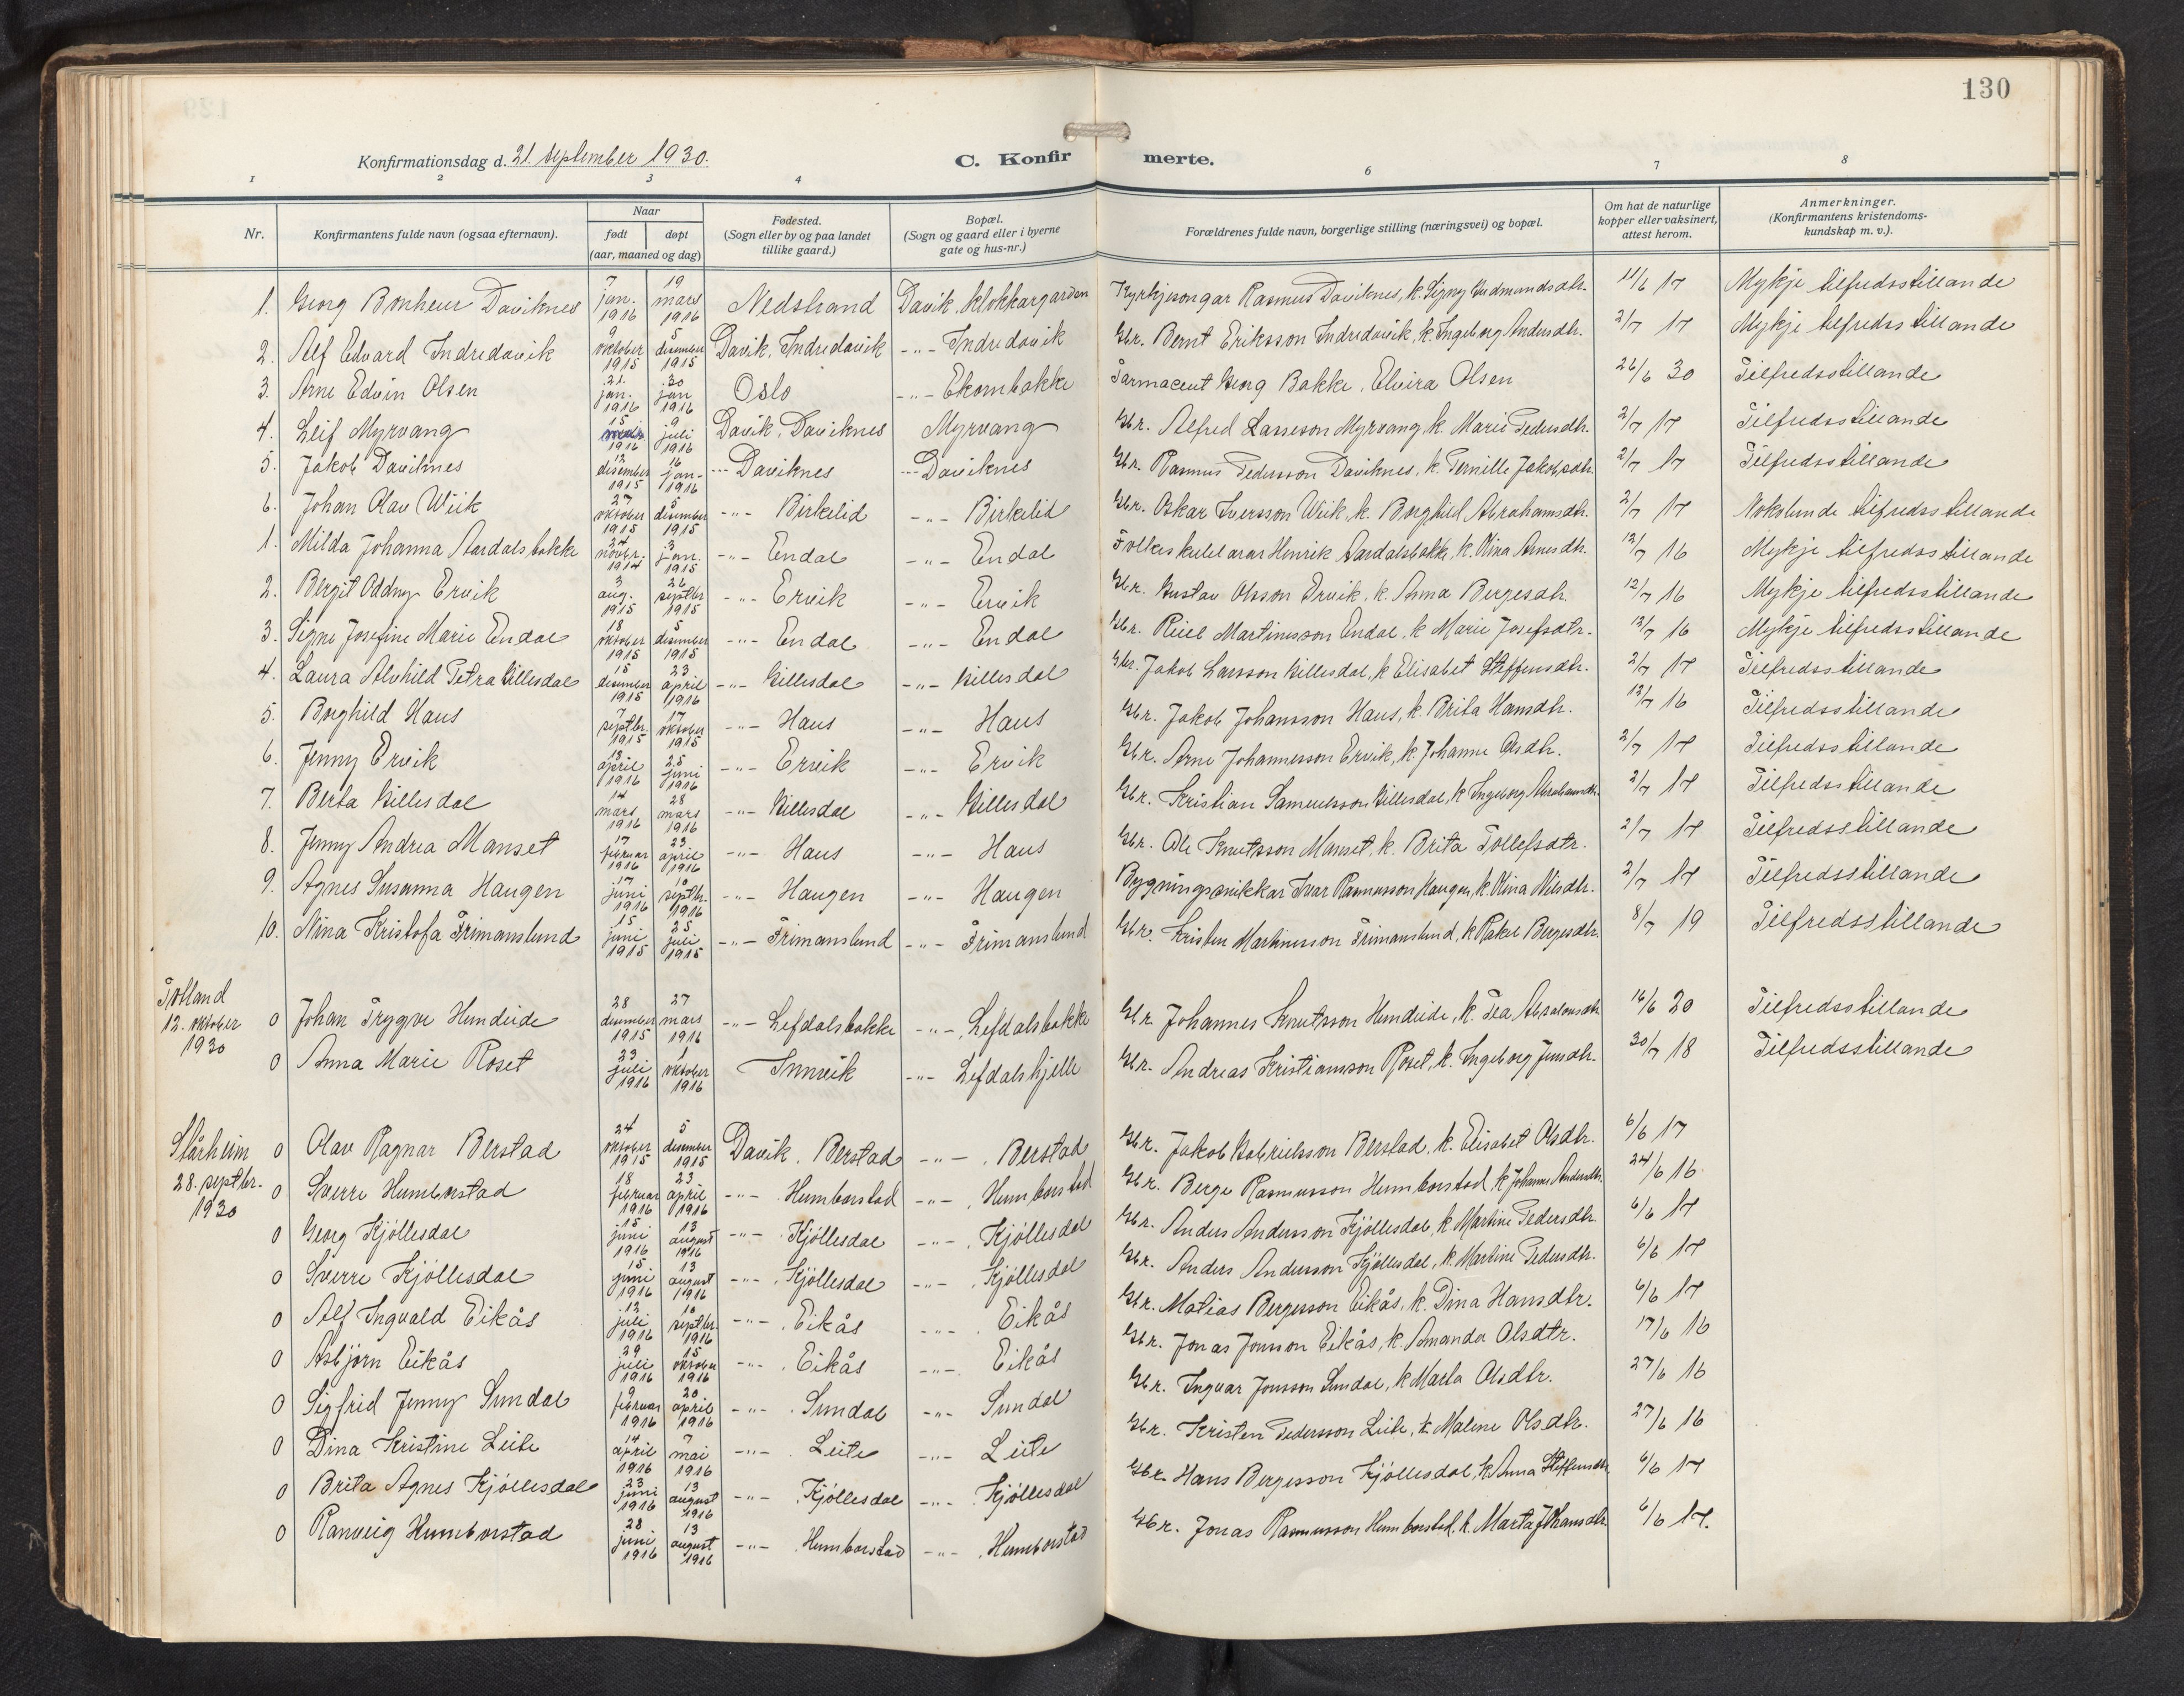 130
Konfirmationsdag d. 21. september 1930.
C. Konfirmerte.
1 2 3 4 6 7 8
Nr.
Konfirmantens fulde navn (ogsaa efternavn).
Naar
født døpt
(aar, maaned og dag)
Fødested.
(Sogn eller by og paa landet
tillike gaard.)
Bopæl.
(Sogn og gaard eller i byerne
gate og hus-nr.)
Forældrenes fulde navn, borgerlige stilling (næringsvei) og bopæl.
Om hat de naturlige
kopper eller vaksinert,
attest herom.
Anmerkninger.
(Konfirmantens kristendoms-
kundskap m. v.).
1. Georg Bonheur Daviknes 7 jan. 1916 19 mars 1916 Nedstrand Davik, Klokkargarden Kyrkjesongar Rasmus Daviknes, k. Signy Gudmundsdtr. 11/6 17 Mykje tilfredsstillande
2. Alf Edvard Indredavik 9 oktober 1915 5 desember 1915 Davik, Indredavik -"- Indredavik Gbr. Bernt Eriksson Indredavik, k. Ingeborg Andersdtr. 2/7 17 Mykje tilfredsstillande
3. Arne Edvin Olsen 21. jan. 1916 30 jan 1916 Oslo -"- Ekornbakke Farmaceut Georg Bakke, Elvira Olsen 26/6 30 Tilfredsstillande
4. Leif Myrvang 15 mars 1916 9 juli 1916 Davik, Daviknes Myrvang Gbr. Alfred Lasseson Myrvang k. Marie Pedersdtr. 2/7 17 Tilfredsstillande
5. Jakob Daviknes 12 desember 1915 16 jan- 1916 -"- Daviknes -"- Daviknes Gbr. Rasmus Pedersson Daviknes, k. Pernille Jakobsdtr. 2/7 17 Tilfredsstillande
6. Johan Olav Wiik 27 oktober 1915 5 desember 1915 -"- Birkelid -"- Birkelid Gbr. Oskar Iversson Wiik, k. Borghild Abrahamsdtr. 2/7 17 Nokolunde tilfredsstillande
1. Milda Johanna Aardalsbakke 24 novbr. 1914 3 jan. 1915 -"- Endal -"- Endal Folkeskulelærar Henrik Aardalsbakke, k. Olina Arnesdtr. 12/7 16 Mykje tilfredsstillande
2. Bergit Oddny Ervik 3 aug. 1915 26 septbr 1915 -"- Ervik -"- Ervik Gbr. Gustav Olsson Ervik, k. Anna Bergesdtr. 12/7 16 Mykje tilfredsstillande
3. Signe Josefine Marie Endal 18 oktober 1915 5 desember 1915 -"- Endal -"- Endal Gbr. Martinusson Endal, k. Marie Josefsdtr. 12/7 16 Mykje tilfredsstillande
4. Laura Alvhild Petra Gillesdal 15 desember 1915 23 april 1916 -"- Gillesdal -"- Gillesdal Gbr. Jakob Larsson Gillesdal, k Elisabet Steffensdtr. 2/7 17 Tilfredsstillande
5. Borghild Haus 7 septbr. 1915 17 oktober 1915 -"- Haus -"- Haus Gbr. Jakob Johansson Haus, k. Brita Hansdtr. 12/7 16 Tilfredsstillande
6. Jenny Ervik 13 april 1916 25 juni 1916 -"- Ervik -"- Ervik Gbr. Arne Johannesson Ervik, k. Johanne Olsdtr. 2/7 17 Tilfredsstillande
7. Berta Gillesdal 14 mars 1916 28 mars 1916 -"- Gillesdal -"- Gillesdal Gbr. Kristian Samuelsson Gillesdal, k Ingeborg Abrahamsdtr. 2/7 17 Tilfredsstillande
8. Jenny Andrea Manset 17 februar 1916 23 april 1916 -"- Haus -"- Haus Gbr. Ole Knutsson Manset, k. Brita Tollefsdtr. 2/7 17 Tilfredsstillande
9. Agnes Susanna Haugen 17 juni 1916 10 septbr. 1916 -"- Haugen -"- Haugen Bygningssnikkar Ivar Rasmusson Haugen, k. Olina Nilsdtr. 2/7 17 Tilfredsstillande
10. Nina Kristofa Frimanslund 15 juni 1915 25 juli 1915 -"- Frimanslund -"- Frimanslund Gbr. Kristen Martinusson Frimanslund, k Rakel Bergesdtr. 8/7 19 Tilfredsstillande
Totland
12. oktober
1930
0 Johan Trygve Hundeide 28 desember 1915 27 mars 1916 -"- Lefdalsbakke -"- Lefdalsbakke Gbr. Johannes Knutsson Hundeide, k. Tea Absalonsdtr 16/6 20 Tilfredsstillande
0 Anna Marie Roset 23 juli 1916 1 oktober 1916 Innvik -"- Lefdalshjelle Gbr. Andreas Kristiansson Roset, k. Ingeborg Jensdtr. 30/7 18 Tilfredsstillande
Stårheim
28. septbr.
1930
0 Olav Ragnar Berstad 24 oktober 1915 5 desember 1915 Davik. Berstad -"- . Berstad Gbr. Jakob Gabrielsson Berstad, k. Elisabet Olsdtr. 6/6 17
0 Sverre Humborstad 18 februar 1916 23 april 1916 -"- Humborstad -"- . Humborstad Gbr. Berge Rasmusson Humborstad k Johanne Andersdtr. 24/6 16
0 Georg Kjøllesdal 15 juni 1916 13 august 1916 -"- . Kjøllesdal -"- . Kjøllesdal Gbr. Anders Andersson Kjøllesdal, k. Martine Pedersdtr. 6/6 17
0 Sverre Kjøllesdal 15 juni 1916 13 august 1916 -"- . Kjøllesdal -"- . Kjøllesdal Gbr. Anders Andersson Kjøllesdal, k. Martine Pedersdtr. 6/6 17
0 Alf Ingvald Eikås 12 juli 1916 10 septbr. 1916 -"- . Eikås -"- . Eikås Gbr. Matias Bergesson Eikås, k. Dina Hansdtr. 6/6 17
0 Asbjørn Eikås 29 juli 1916 15 oktober 1916 -"- . Eikås -"- . Eikås Gbr. Jonas Jonsson Eikås, k. Amanda Olsdtr. 17/6 16
0 Sigfrid Jenny Sundal 9 februar 1916 20 april 1916 -"- . Sundal -"- Sundal Gbr. Ingvar Jonsson Sundal, k Marta Olsdtr. 27/6 16
0 Dina Kristine Leite 14 april 1916 7 mai 1916 -"- . Leite -"- Leite Gbr. Kristen Pedersson Leite, k. Malene Olsdtr. 27/6 16
0 Brita Agnes Kjøllesdal 23 juni 1916 13 august 1916 -"- . Kjøllesdal -"- . Kjøllesdal Gbr. Hans Bergesson Kjøllesdal, k. Anna Steffensdtr 6/6 17
0 Ranveig Humborstad 28 juni 1916 13 august 1916 -"- . Humborstad -"- . Humborstad Gbr. Jonas Rasmusson Humborstad. k. Marta Johansdtr. 6/6 17.